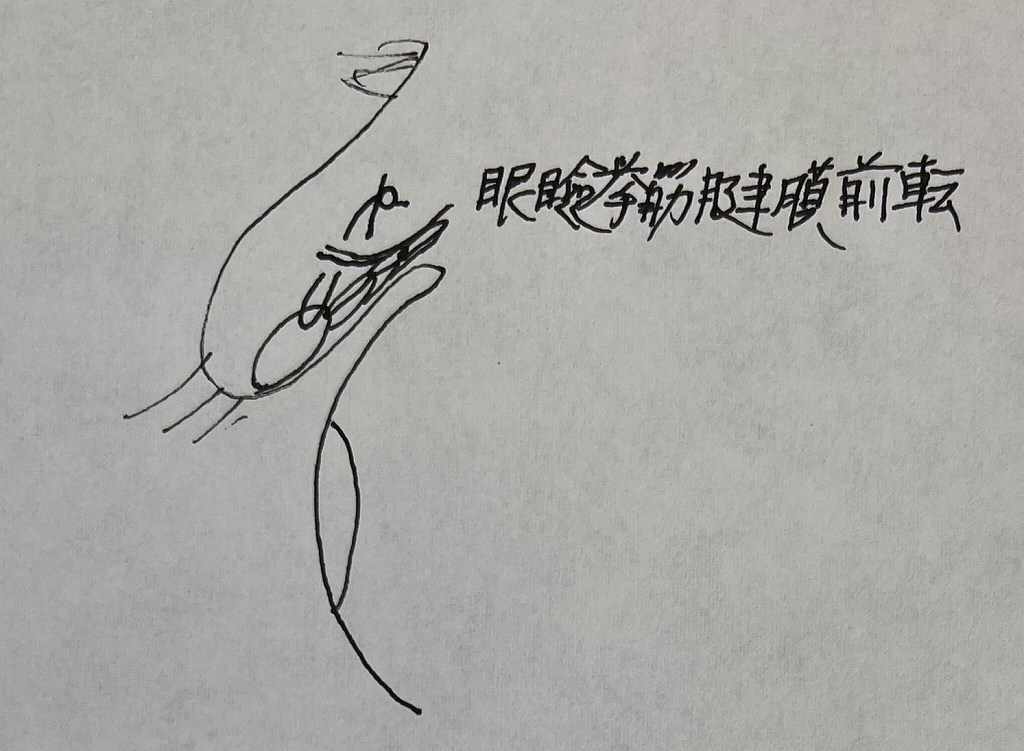 眼瞼挙筋腱膜前転